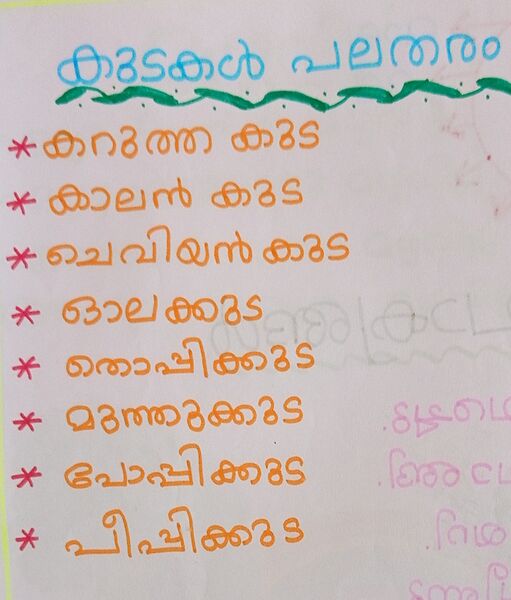 കുടകൾ പലതരം
* കറുത്ത കുട
* കാലൻ കുട
* ചെവിയൻ കുട
* ഓലക്കുട
* തൊപ്പിക്കുട
* മുത്തുക്കുട
* പോപ്പിക്കുട
* പീപ്പിക്കുട